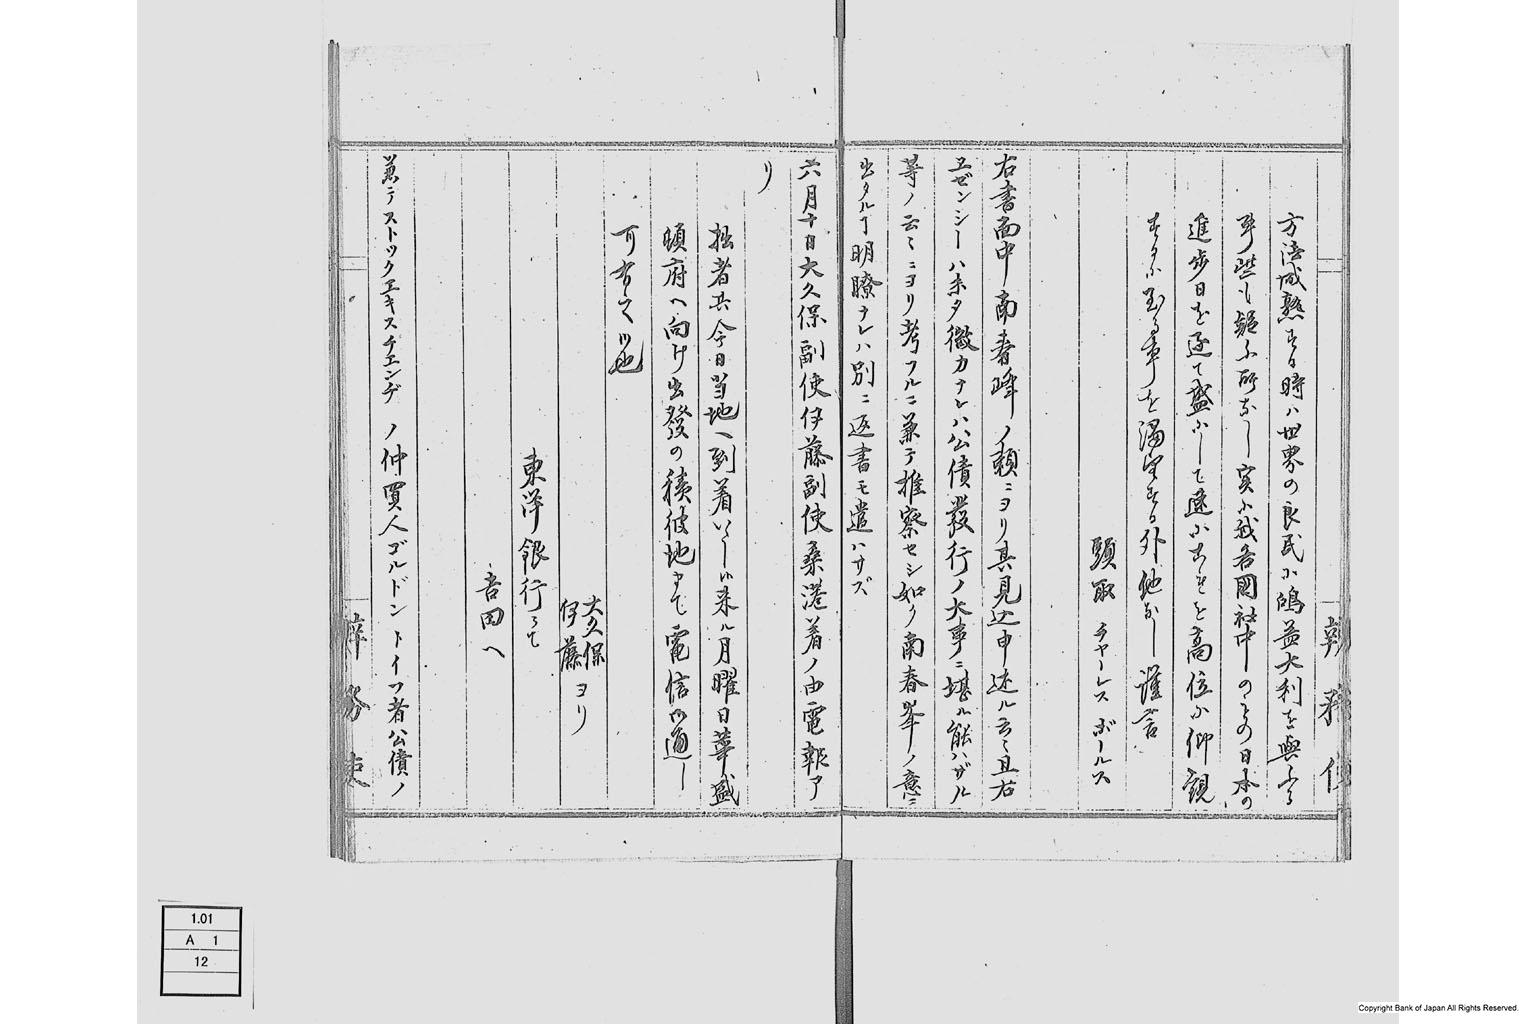 方法成熟する時ハ世界の良民に鴻益大利を與ふる
事些も疑ふ所なし実に我各国社中のもの日本の
進歩日を逐て盛にして遠に其を高位に仰観
するに至る事を渇望する外他なし謹言
頭取 チャーレス ボールス
右書面中南春峰ノ頼ニヨリ其見込申述ル云々且右
エゼンシーハ未タ微力ナレハ公債發行ノ大事ニ堪ル能ハザル
等ノ云々ニヨリ考フルニ兼テ推察セシ如ク南春峯ノ意ニ
出タルヿ明瞭ナレハ別ニ返書モ遣ハサズ
六月十日大久保副使伊藤副使桑港着ノ由電報ア
リ
拙者共今日当地ヘ到着いたし候来ル月曜日華盛
頓府ヘ向け出發の積彼地まで電信御通し
可有之候也
大久保
伊藤 ヨリ
東洋銀行にて
吉田へ
兼テストックエキスチエンヂノ仲買人ゴルドントイフ者公債ノ
辨務使
辨務使
1.01
A 1
12
Copyright Bank of Japan All Rights Reserved.